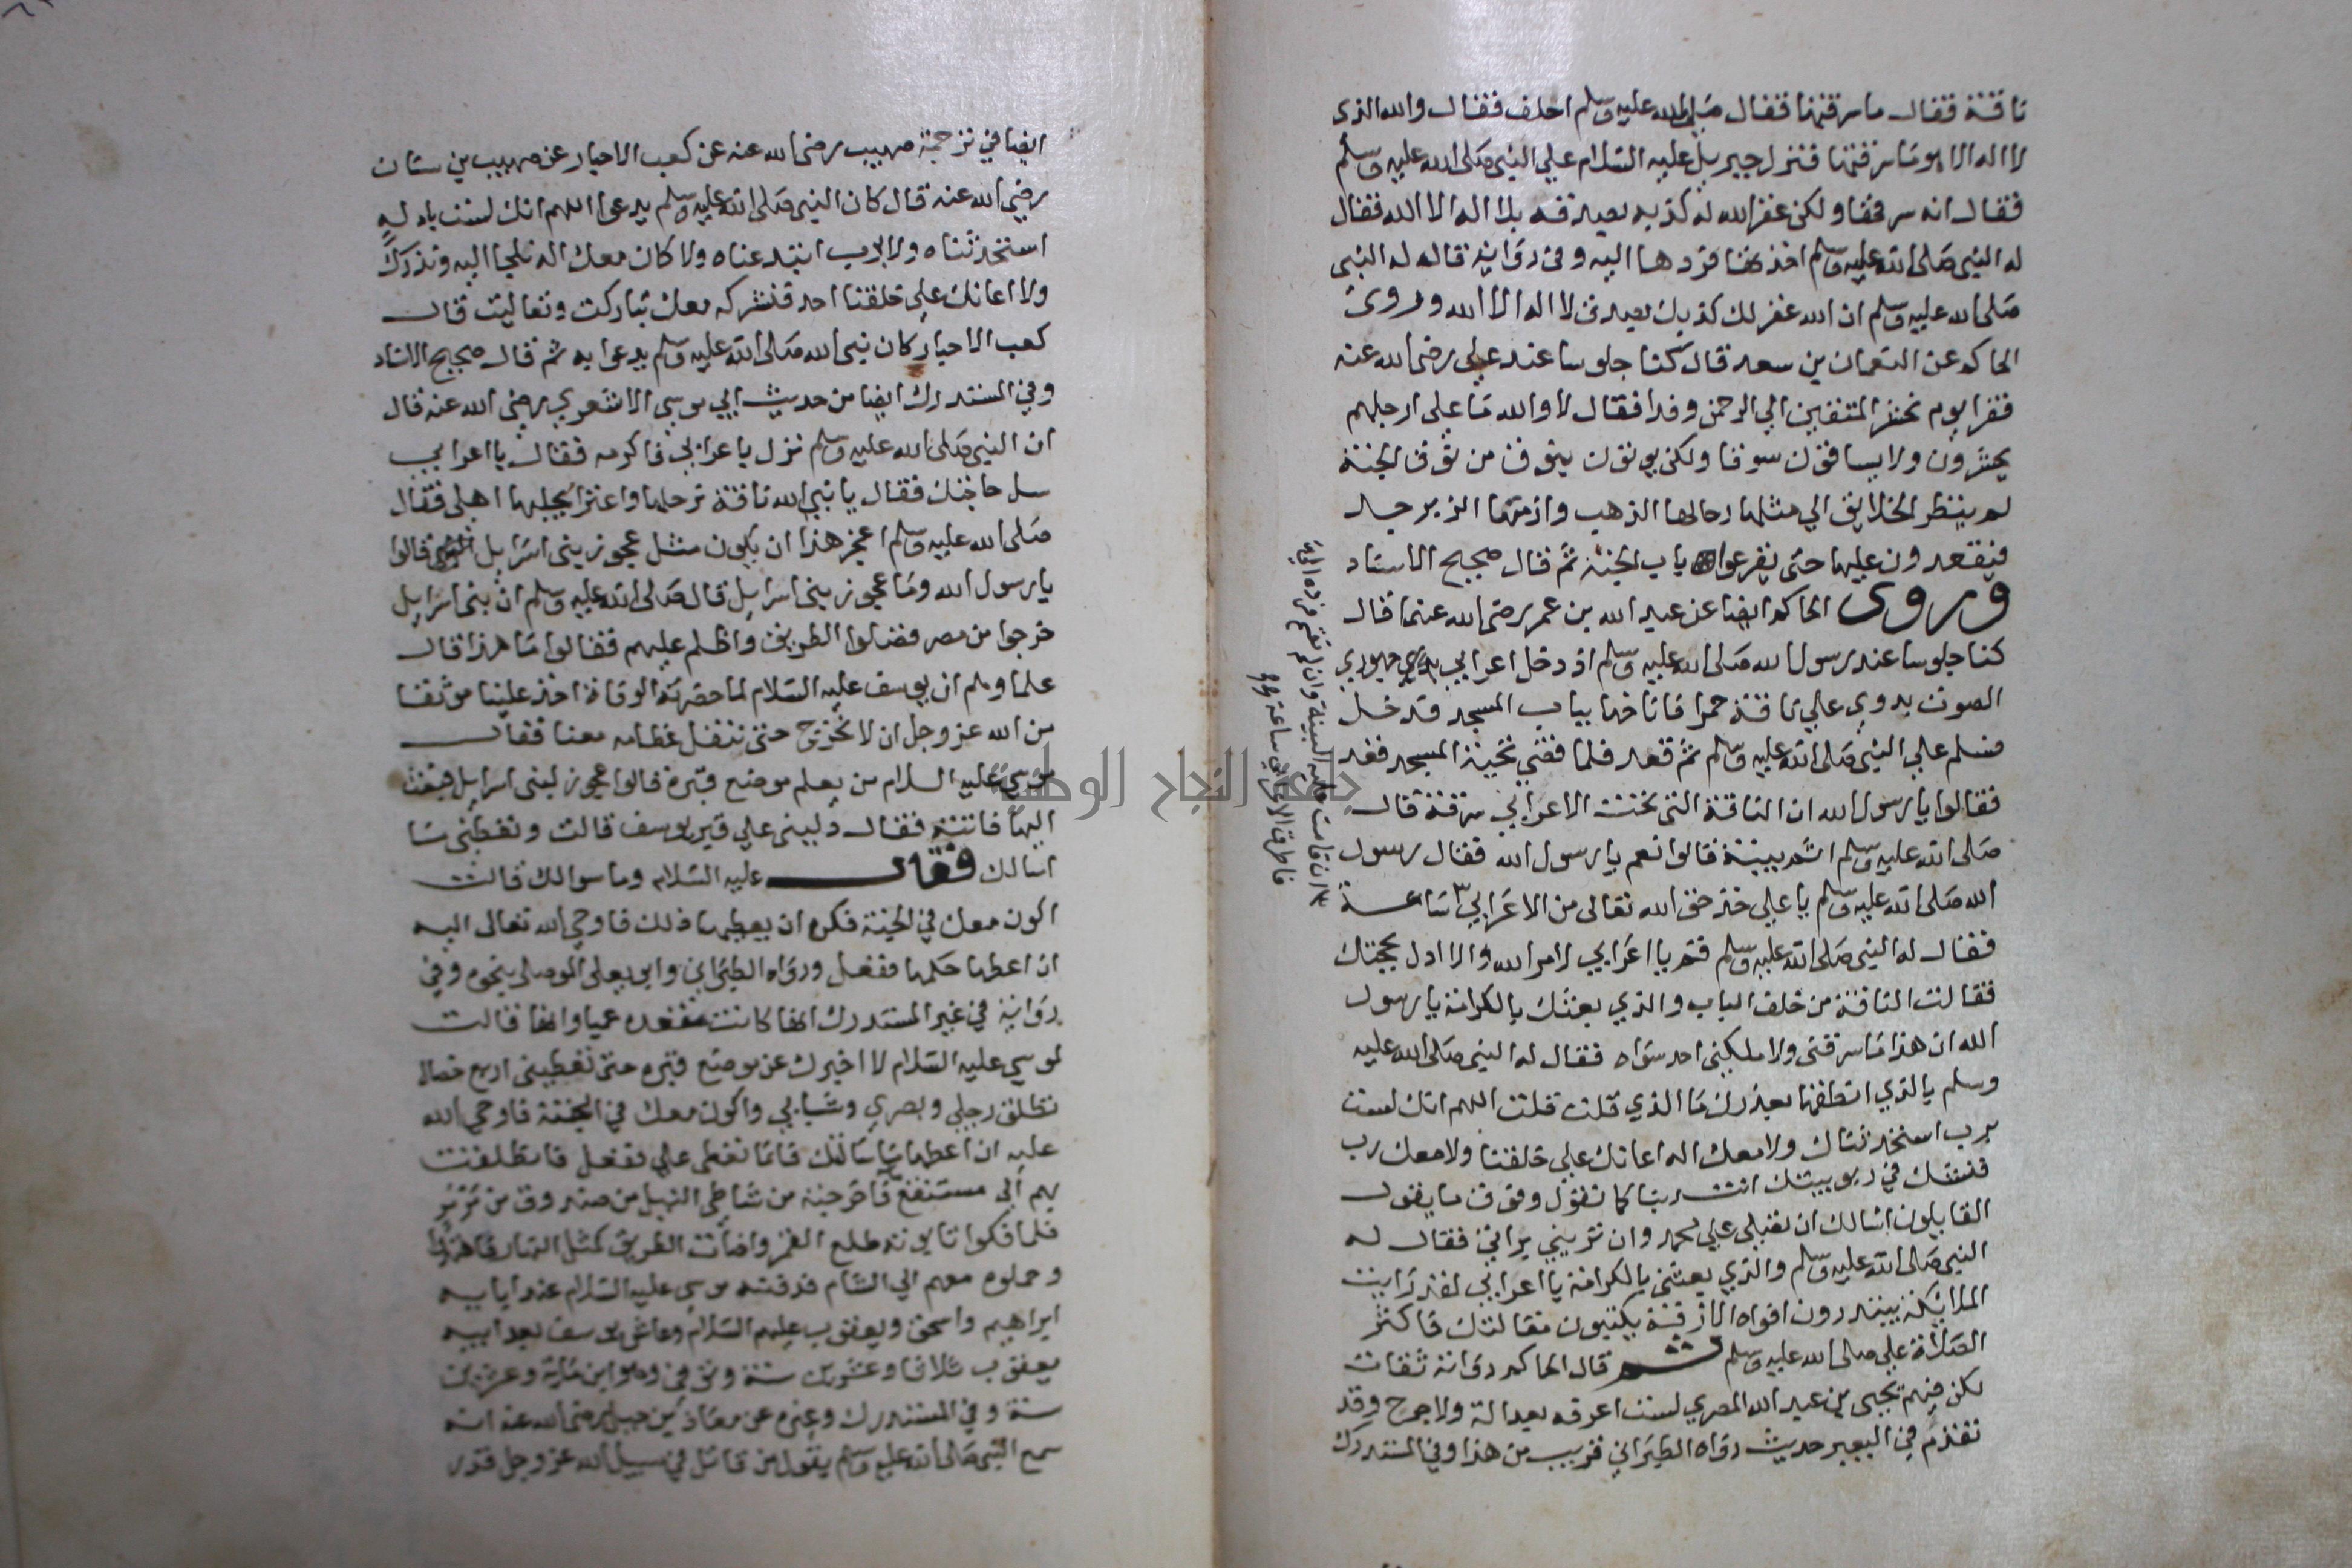 ناقته فقال ما سرقتها فقال صلى الله عليه وسلم احلف فقال والله الذي
لا اله الا هو ما سرقتها فنزل جبريل عليه السلام علي النبي صلى الله عليه وسلم
فقال انه سرقها ولكن غفر الله له كذبه بصدقه بلا اله الا الله فقال
له النبي صلى الله عليه وسلم اخذتها فردها اليه وفي رواية قال له النبي
صلى الله عليه وسلم ان الله غفر لك كذبك بصدق لا اله الا الله وروى
الحاكم عن النعمان بن سعد قال كنا جلوسا عند علي رضى الله عنه
فقرا يوم نحشر المتقين الي الرحمن وفدا فقال لا والله ما على ارجلهم
يحشرون ولا يساقون سوقا ولكن يوتون بنوق من نوق الجنة
لم ينظر الخلايق الي مثلها رحالها الذهب وازمتها الزبرجد
فيقعدون عليها حتى يقرعوا باب الجنة ثم قال صحيح الاسناد
وروى الحاكم ايضا عن عبد الله بن عمر رضى الله عنهما قال
كنا جلوسا عند رسول الله صلى الله عليه وسلم اذ دخل اعرابي جهوري
الصوت بدوي علي ناقة حمرا فاناخها بباب المسجد فدخل
فسلم علي النبي صلى الله عليه وسلم ثم قعد فلما قضي تحية المسجد قعد
فقالوا يا رسول الله ان الناقة التي تحت الاعرابي سرقة قال
صلى الله عليه وسلم اثم ببينة قالوا نعم يا رسول الله فقال رسول
الله صلى الله عليه وسلم يا علي خذ حق الله تعالى من الاعرابي ساعة
فقال له النبي صلى الله عليه وسلم قم يا اعرابي لامر الله والا ادل بحجتك
فقالت الناقة من خلف الباب والذي بعثك بالكرامة يا رسول
الله ان هذا ما سرقني ولا ملكني احد سواه فقال له النبي صلى الله عليه
وسلم بالذي انطقها بعذرك ما الذي قلت قلت اللهم انك لست
برب استحدثناك ولا معك اله اعانك علي خلقنا ولا معك رب
فنشك في ربوبيتك انت ربنا كما نقول وفوق ما يقول
القايلون اسالك ان تصلي علي محمد وان تريني براتي فقال له
النبي صلى الله عليه وسلم والذي بعثني بالكرامة يا اعرابي لقد رايت
الملايكة يبتدرون افواه الازقة يكتبون مقالتك فاكثر
الصلاة علي صلى الله عليه وسلم ثم قال الحاكم رواته ثقات
لكن فيهم يحيى بن عبد الله المصري لست اعرفه بعدالة ولا جرح وقد
تقدم في البعير حديث رواه الطبراني قريب من هذا وفي المستدرك
ان قامت عليه البينة وان لم تقم فرده الي
فاطرق الاعرابي ساعة
ايضا في ترجمة صهيب رضى الله عنه عن كعب الاحبار عن صهيب بن سنان
رضي الله عنه قال كان النبي صلى الله عليه وسلم يدعوا اللهم انك لست باله
استحدثناه ولا برب ابتدعناه ولا كان معك اله نلجا اليه ونذرك
ولا اعانك علي خلقنا احد فنشركه معك تباركت وتعاليت قال
كعب الاحبار كان نبي الله صلى الله عليه وسلم يدعوا به ثم قال صحيح الاسناد
وفي المستدرك ايضا من حديث ابي موسى الاشعري رضي الله عنه قال
ان النبي صلى الله عليه وسلم نزل باعرابي فاكرمه فقال يا اعرابي
سل حاجتك فقال يا نبي الله ناقة نرحلها واعنزا يحلبها اهلي فقال
صلى الله عليه وسلم اعجز هذا ان يكون مثل عجوز بني اسرايل قالوا
يا رسول الله وما عجوز بني اسرايل قال صلى الله عليه وسلم ان بني اسرايل
خرجوا من مصر فضلوا الطريق واظلم عليهم فقالوا ما هذا قال
علماوهم ان يوسف عليه السلام لما حضرته الوفاة اخذ علينا موثقا
من الله عز وجل ان لا نخرج حتى ننقل عظامه معنا فقال
موسى عليه السلام من يعلم موضع قبره قالوا عجوز لبني اسرايل فبعث
اليها فاتته فقال دليني علي قبر يوسف قالت وتعطيني ما
اسالك فقال عليه السلام وما سوالك قالت
اكون معك في الجنة فكره ان يعطيها ذلك فاوحي الله تعالى اليه
ان اعطها حكمها ففعل ورواه الطبراني وابو يعلى الموصلي بنحوه وفي
رواية في غير المستدرك انها كانت مقعده عميا وانها قالت
لموسي عليه السلام لا اخبرك عن موضع قبره حتى تعطيني اربع خصال
تطلق رجلي وبصري وشبابي واكون معك في الجنة فاوحي الله
عليه ان اعطها ما سالتك فانما تعطى علي ففعل فانطلقت
بهم الى مستنقع فاخرجته من شاطي النيل من صندوق من مرمر
فلما فكوا تابوته طلع القمر واضات الطريق كمثل النهار فاهتدوا
وحملوه معهم الي الشام فدفنه موسى عليه السلام عند ابايه
ابراهيم واسحق ويعقوب عليهم السلام وعاش يوسف بعد ابيه
يعقوب ثلاثا وعشرين سنة وتوفي وهو ابن ماية وعشرين
سنة وفي المستدرك وغيره عن معاذ بن جبل رضى الله عنه انه
سمع النبي صلى الله عليه وسلم يقول من قاتل في سبيل الله عز وجل قدر
جامعة النجاح الوطنية